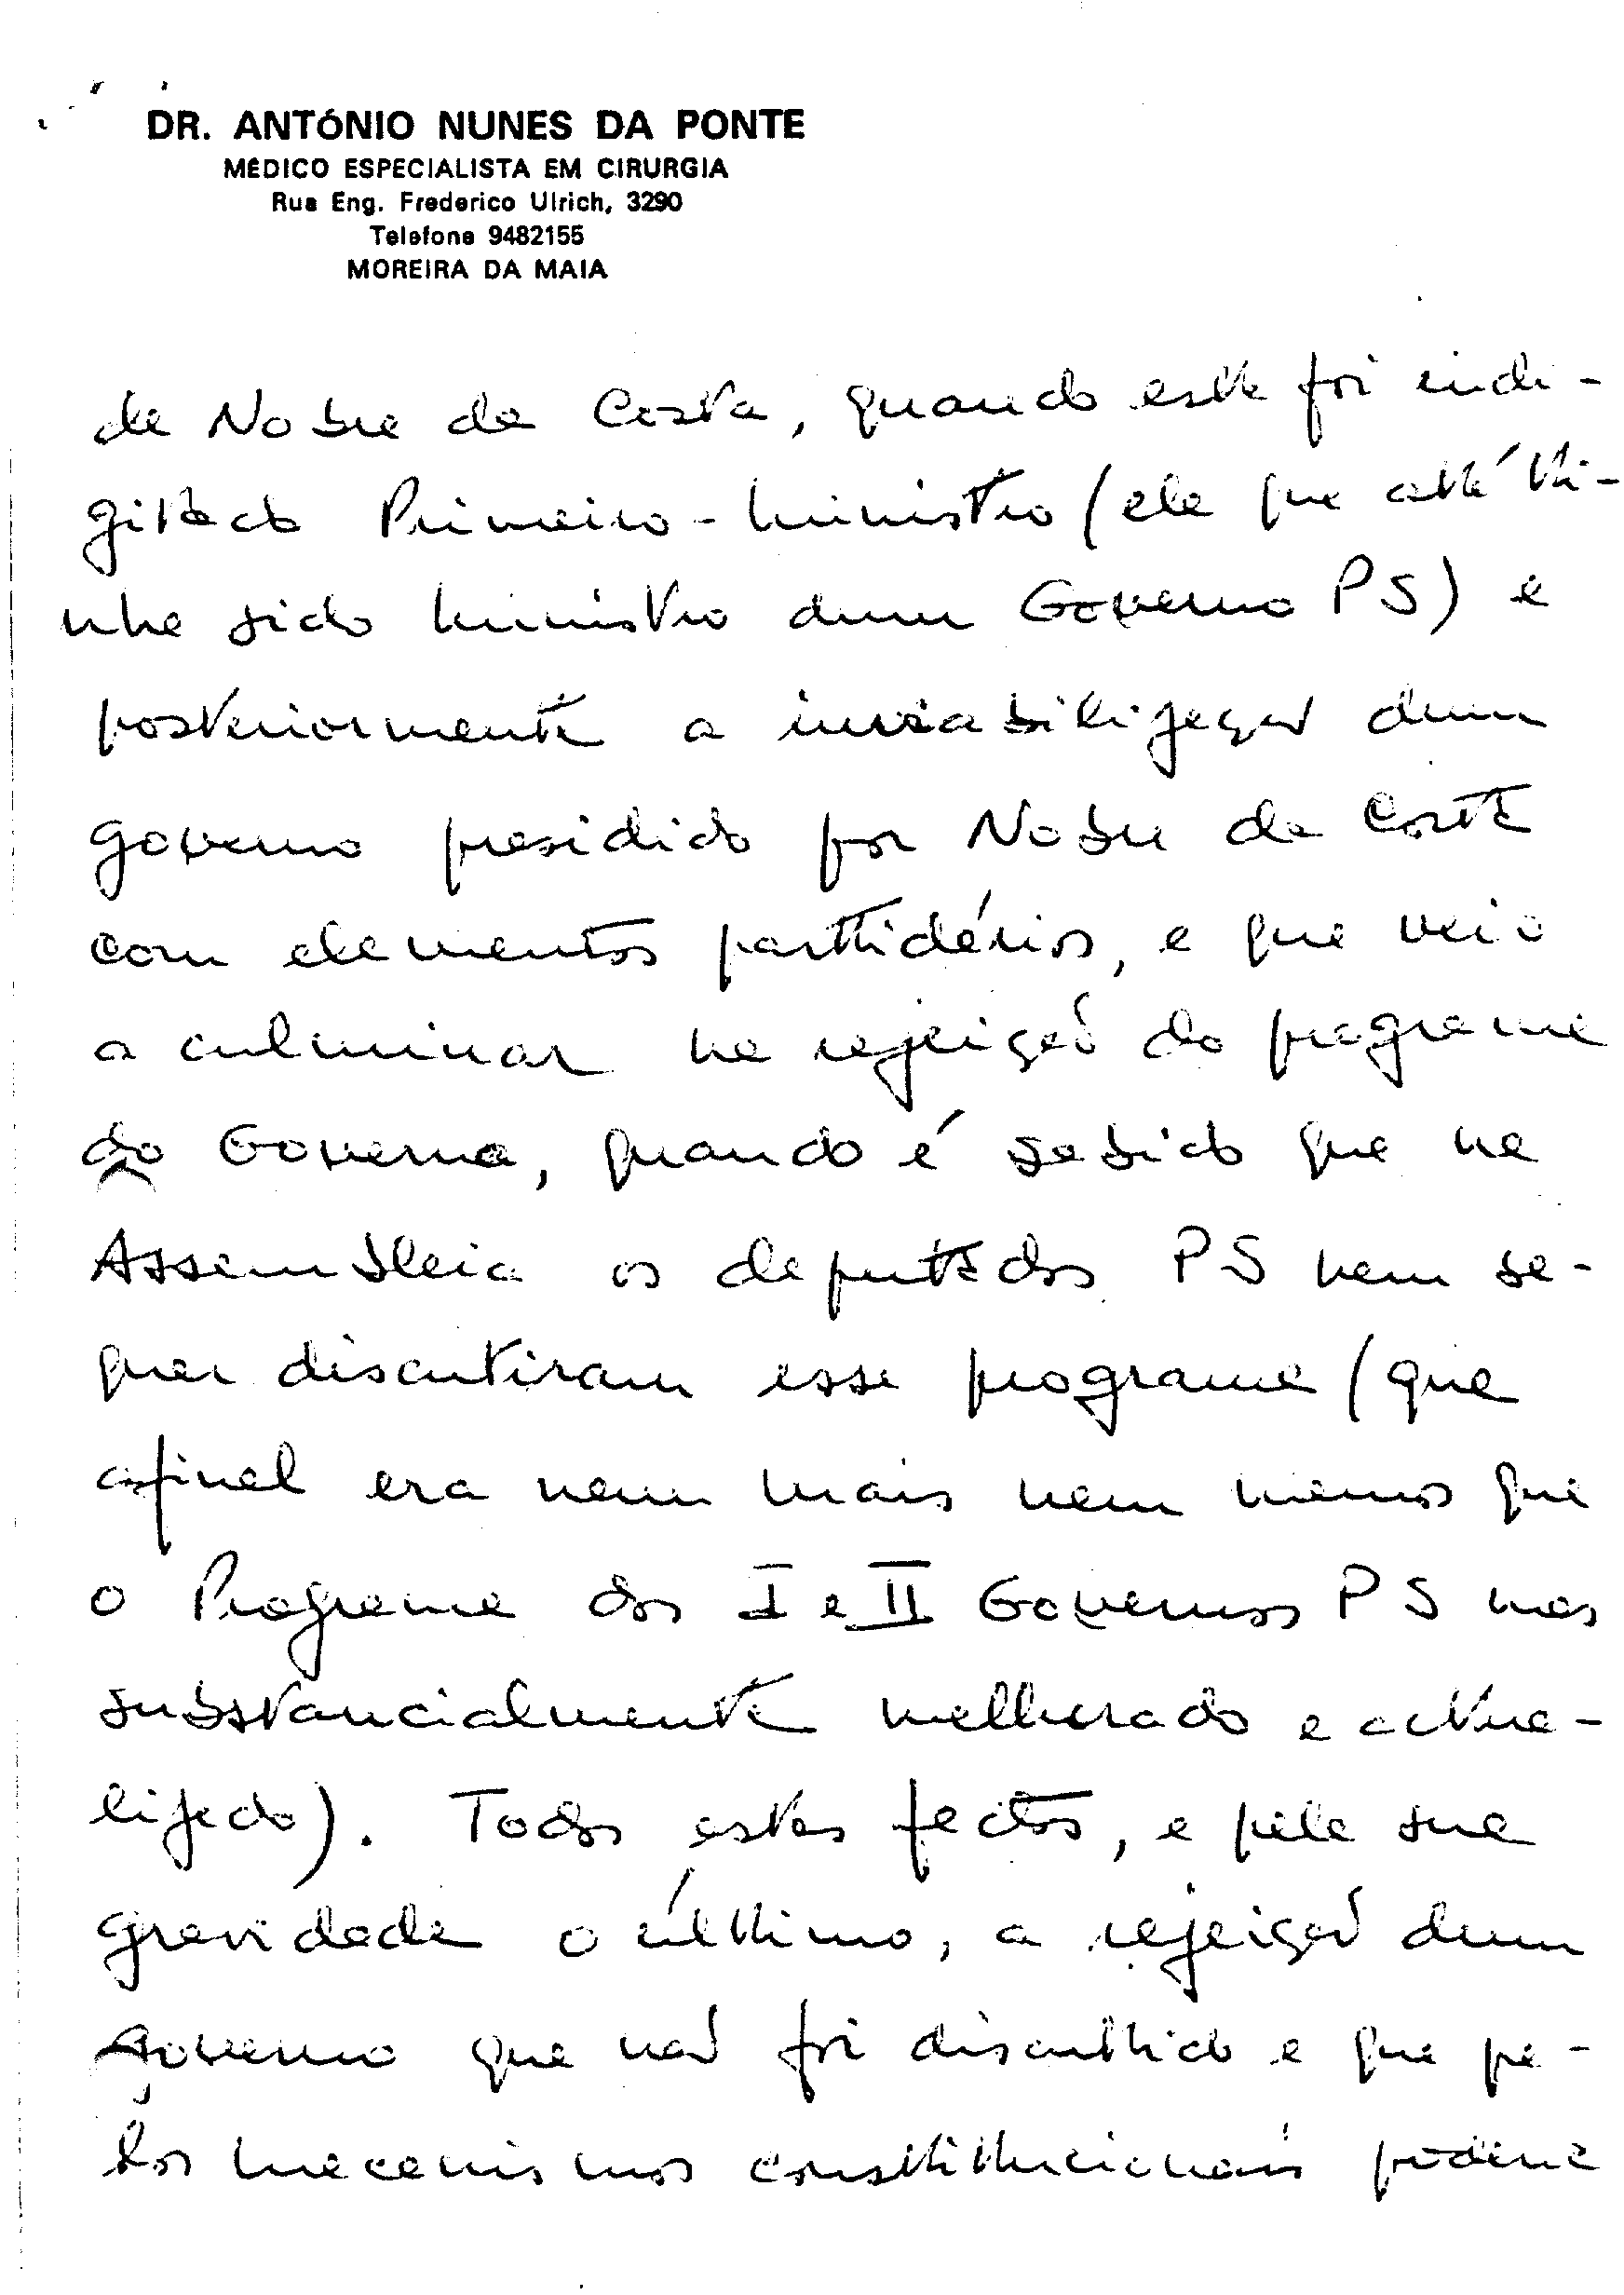 DR. ANTÓNIO NUNES DA PONTE
MÉDICO ESPECIALISTA EM CIRURGIA
Rua Eng. Frederico Ulrich, 3290
Telefone 9482155
MOREIRA DA MAIA
de Nobre da Costa, quando este foi indi-
gitado Primeiro-Ministro (ele que até ti-
nha sido Ministro dum Governo PS) e
posteriormente a inviabilização dum
governo presidido por Nobre da Costa
com elementos partidários, e que veio
a culminar na rejeição do programa
do Governo, quando é sabido que na
Assembleia os deputados PS nem se-
quer discutiram esse programa (que
afinal era nem mais nem menos que
o Programa dos I e II Governos PS mas
substancialmente melhorado e actua-
lizado). Todos estes factos, e pela sua
gravidade o último, a rejeição dum
Governo que não foi discutido e que pe-
los mecanismos constitucionais poderia